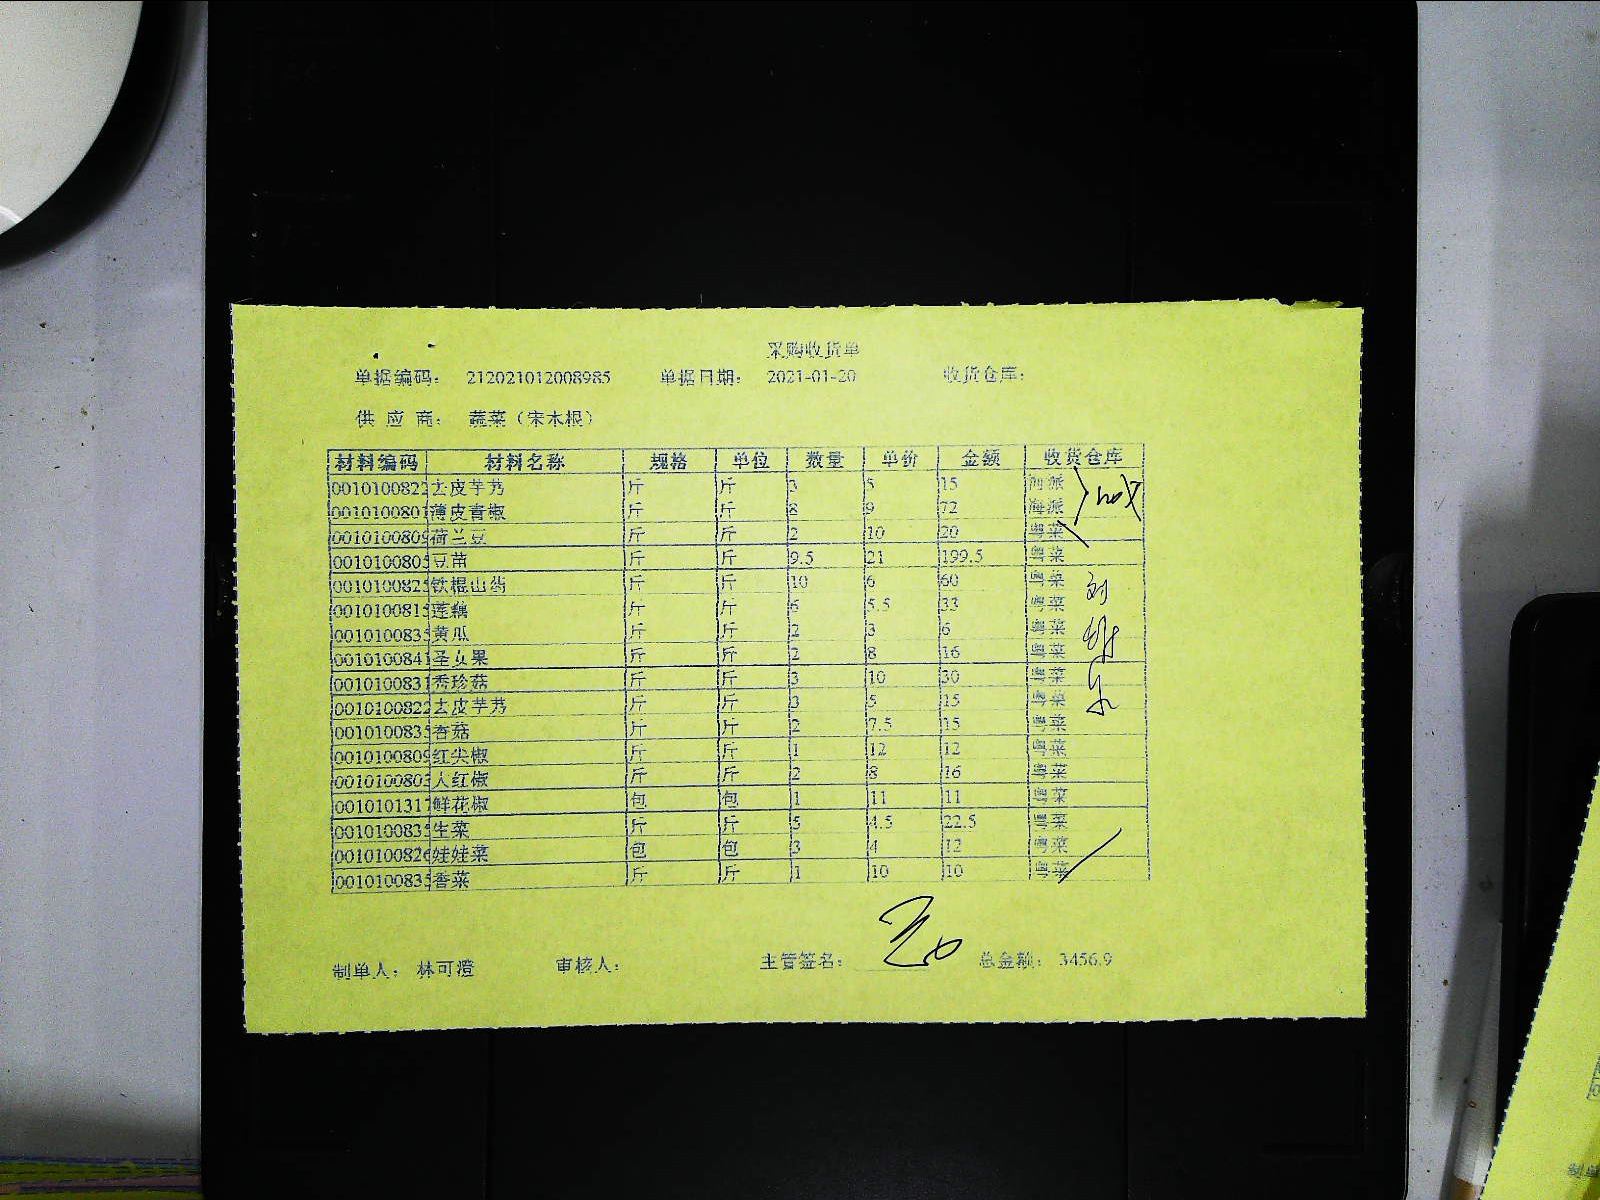 采购收货单
单据编码： 212021012008985 单据日期： 2021-01-20 收货仓库：
供 应 商： 蔬菜（宋木根）
材料编码 材料名称 规格 单位 数量 单价 金额 收货仓库
0010100822 去皮芋艿 斤 斤 3 5 15 海派
0010100801 薄皮青椒 斤 斤 8 9 72 海派
0010100809 荷兰豆 斤 斤 2 10 20 粤菜
0010100805 豆苗 斤 斤 9.5 21 199.5 粤菜
0010100825 铁棍山药 斤 斤 10 6 60 粤菜
0010100815 莲藕 斤 斤 6 5.5 33 粤菜
0010100835 黄瓜 斤 斤 2 3 6 粤菜
0010100841 圣女果 斤 斤 2 8 16 粤菜
0010100831 秀珍菇 斤 斤 3 10 30 粤菜
0010100822 去皮芋艿 斤 斤 3 5 15 粤菜
0010100835 香菇 斤 斤 2 7.5 15 粤菜
0010100809 红尖椒 斤 斤 1 12 12 粤菜
0010100803 大红椒 斤 斤 2 8 16 粤菜
0010101317 鲜花椒 包 包 1 11 11 粤菜
0010100835 生菜 斤 斤 5 4.5 22.5 粤菜
0010100826 娃娃菜 包 包 3 4 12 粤菜
0010100835 香菜 斤 斤 1 10 10 粤菜
制单人： 林可澄 审核人： 主管签名： 总金额： 3456.9